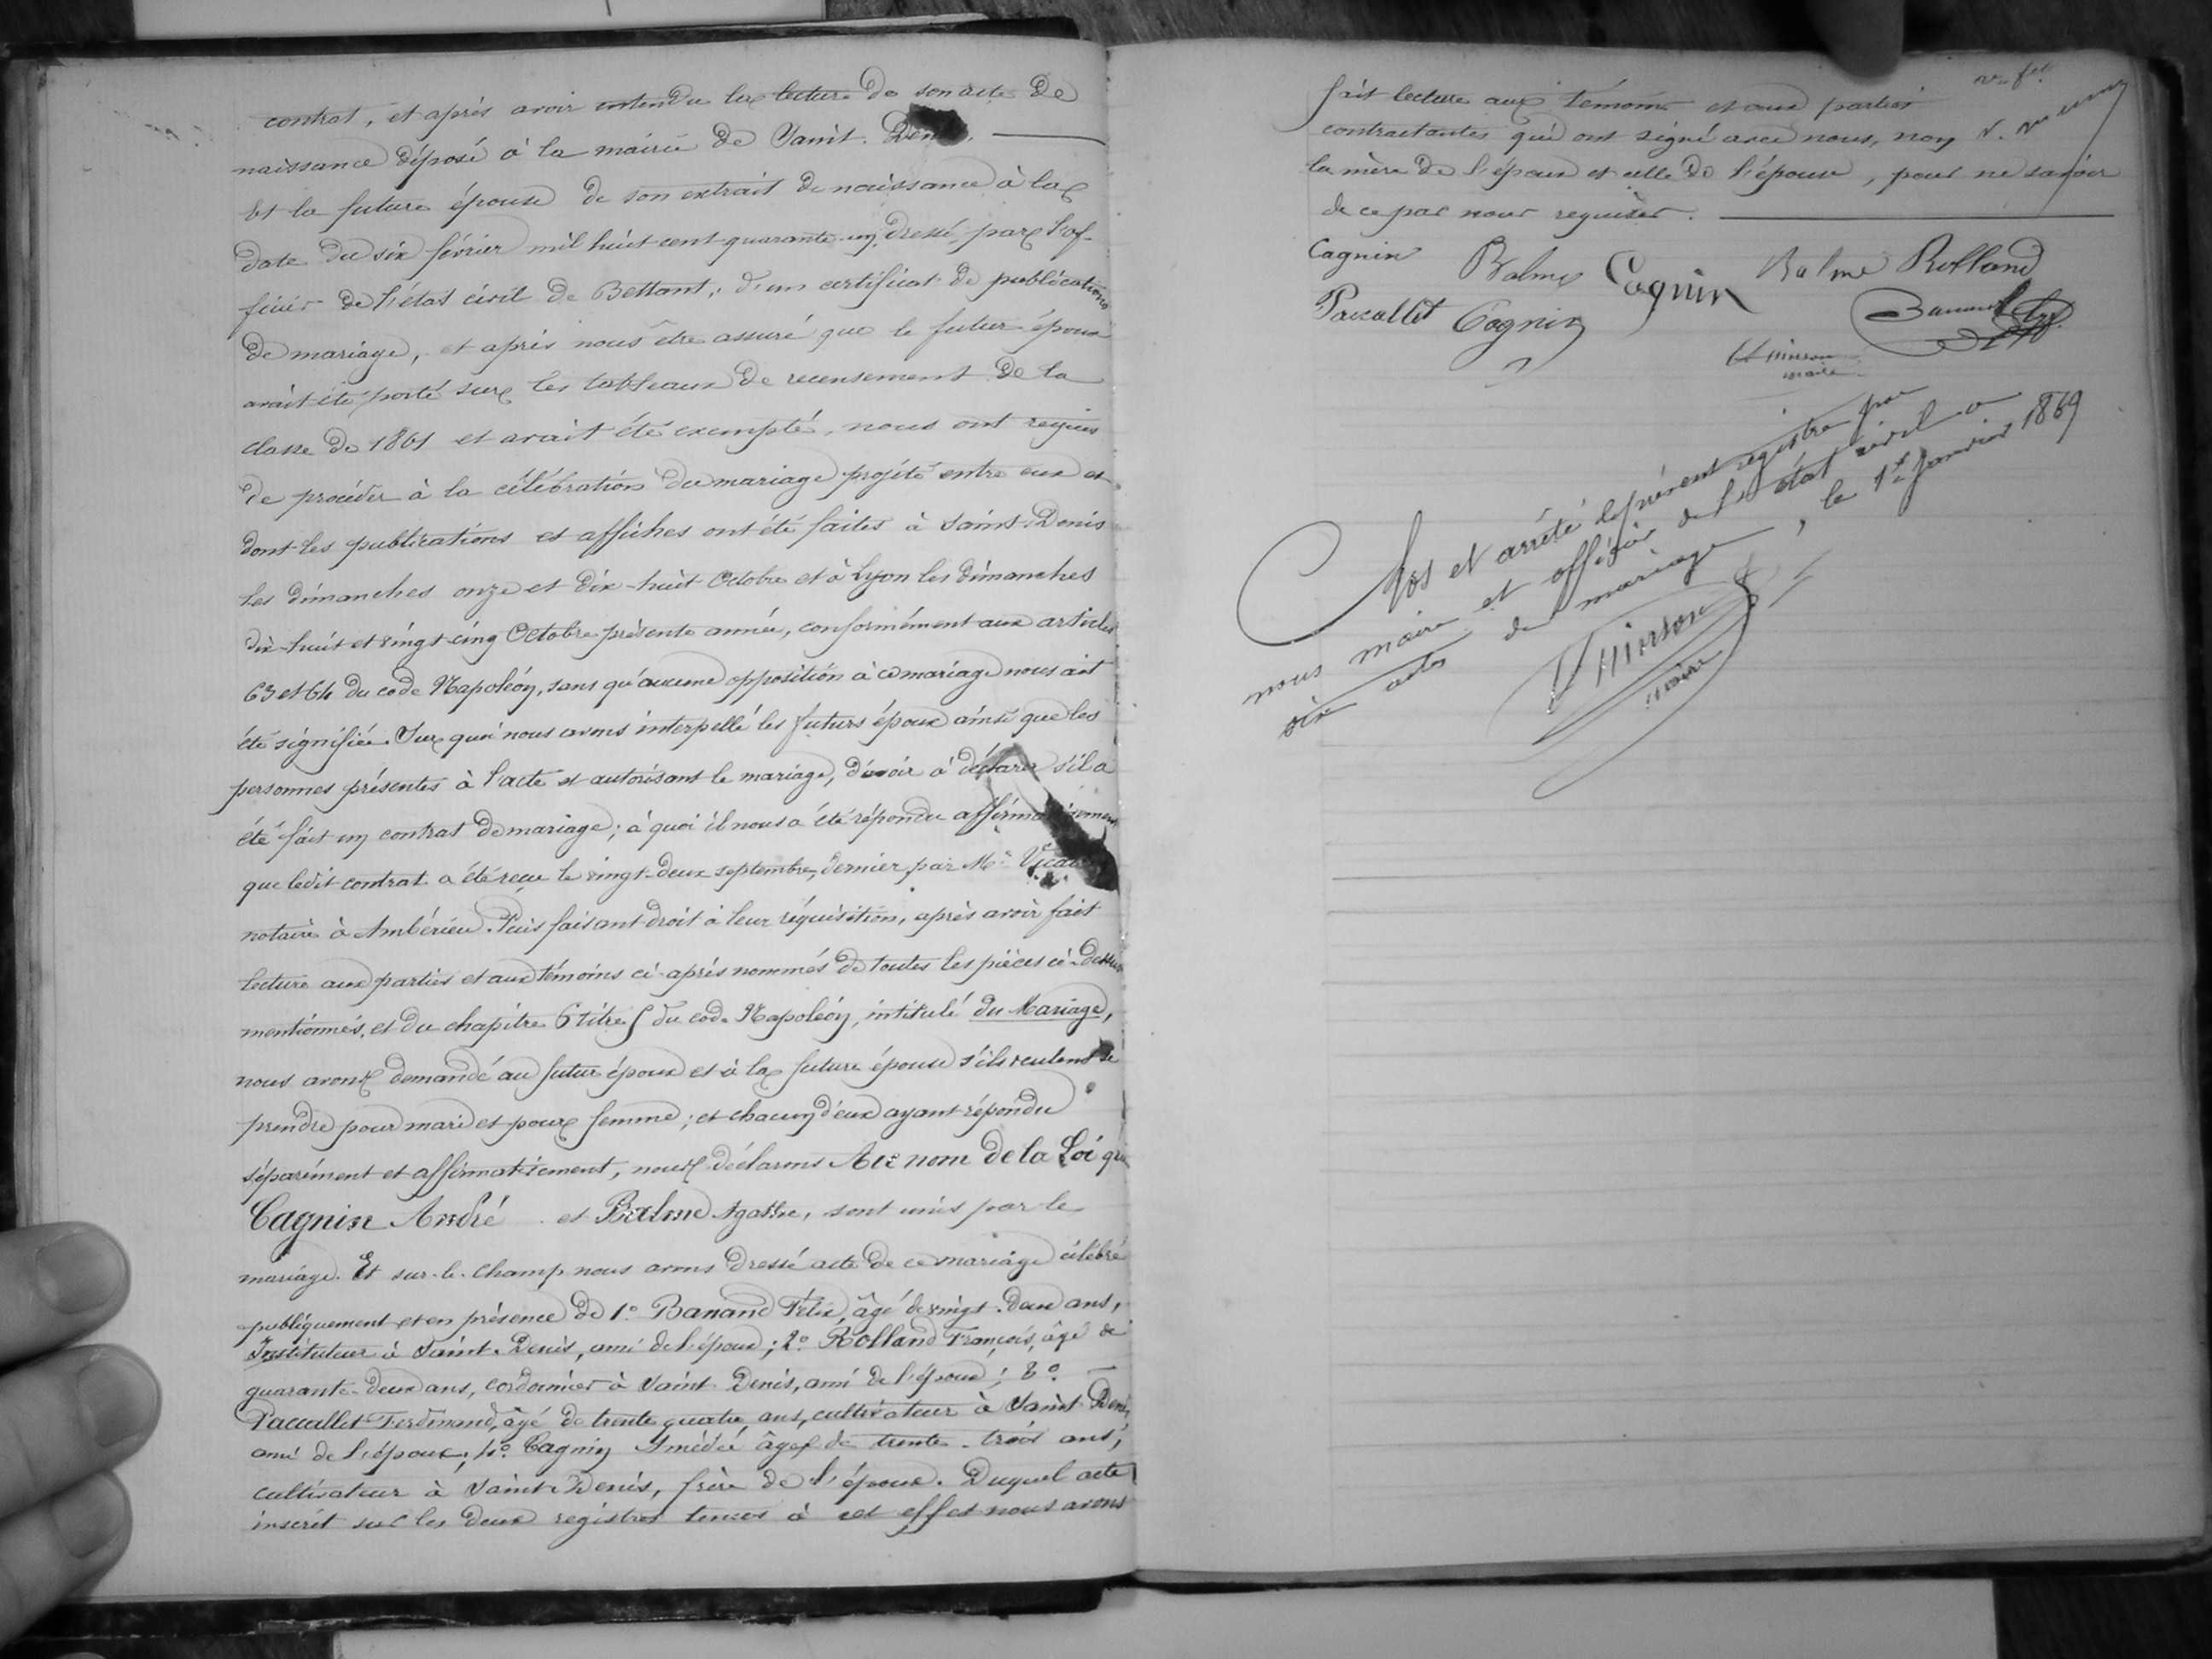 contrat, et après avoir entendu la lecture de son acte de
naissance déposé à la mairie de Saint-Denis.
Et la future épouse de son extrait de naissance à la
date du six février mil huit cent quarante-un, dressé par l'of-
ficier de l'état civil de Bettant; d'un certificat de publications
de mariage, et après nous être assuré que le futur époux
avait été porté sur les tableaux de recensement de la
classe de 1861 et avait été exempté, nous ont requis
de procéder à la célébration du mariage projeté entre eux et
dont les publications et affiches ont été faites à Saint-Denis
les dimanches onze et dix-huit Octobre et à Lyon les dimanches
dix-huit et vingt-cinq Octobre présente année, conformément aux articles
63 et 64 du code Napoléon, sans qu'aucune opposition à ce mariage nous ait
été signifiée. Sur quoi nous avons interpellé les futurs époux ainsi que les
personnes présentes à l'acte et autorisant le mariage, d'avoir à déclarer s'il a
été fait un contrat de mariage; à quoi il nous a été répondu affirmativement
que ledit contrat a été reçu le vingt-deux septembre dernier par Me
notaire à Ambérieu. Puis faisant droit à leur réquisition, après avoir fait
lecture aux parties et aux témoins ci-après nommés de toutes les pièces ci-dessus
mentionnés, et du chapitre 6 titre 5 du code Napoléon, intitulé du Mariage,
nous avons demandé au futur époux et à la future épouse s'ils veulent se
prendre pour mari et pour femme; et chacun d'eux ayant répondu
séparément et affirmativement, nous déclarons Au nom de la Loi que
Cagnin André et Balme Agathe, sont unis par le
mariage. Et sur-le-champ nous avons dressé acte de ce mariage célébré
publiquement et en présence de 1° Banand Félix, âgé de vingt-deux ans,
Instituteur à Saint-Denis, ami de l'époux; 2° Rolland François, âgé de
quarante-deux ans, cordonnier à Saint-Denis, ami de l'époux; 3°
Paccallet Ferdinand, âgé de trente quatre ans, cultivateur à Saint-Denis,
ami de l'époux; 4° Cagnin Amédée âgé de trente-trois ans,
cultivateur à Saint-Denis, frère de l'époux. Duquel acte
inscrit sur les deux registres tenus à cet effet nous avons
fait lecture aux témoins et aux parties
contractantes qui ont signé avec nous, non
la mère de l'époux et celle de l'épouse, pour ne savoir
de ce par nous requises.
Cagnin Balme Cagnin Balme Rolland
Paccallet Cagnin Banand
maire
Clos et arrêté le présent registre par
nous maire et officier de l'état civil à
six actes de mariage, le 1er Janvier 1869
maire